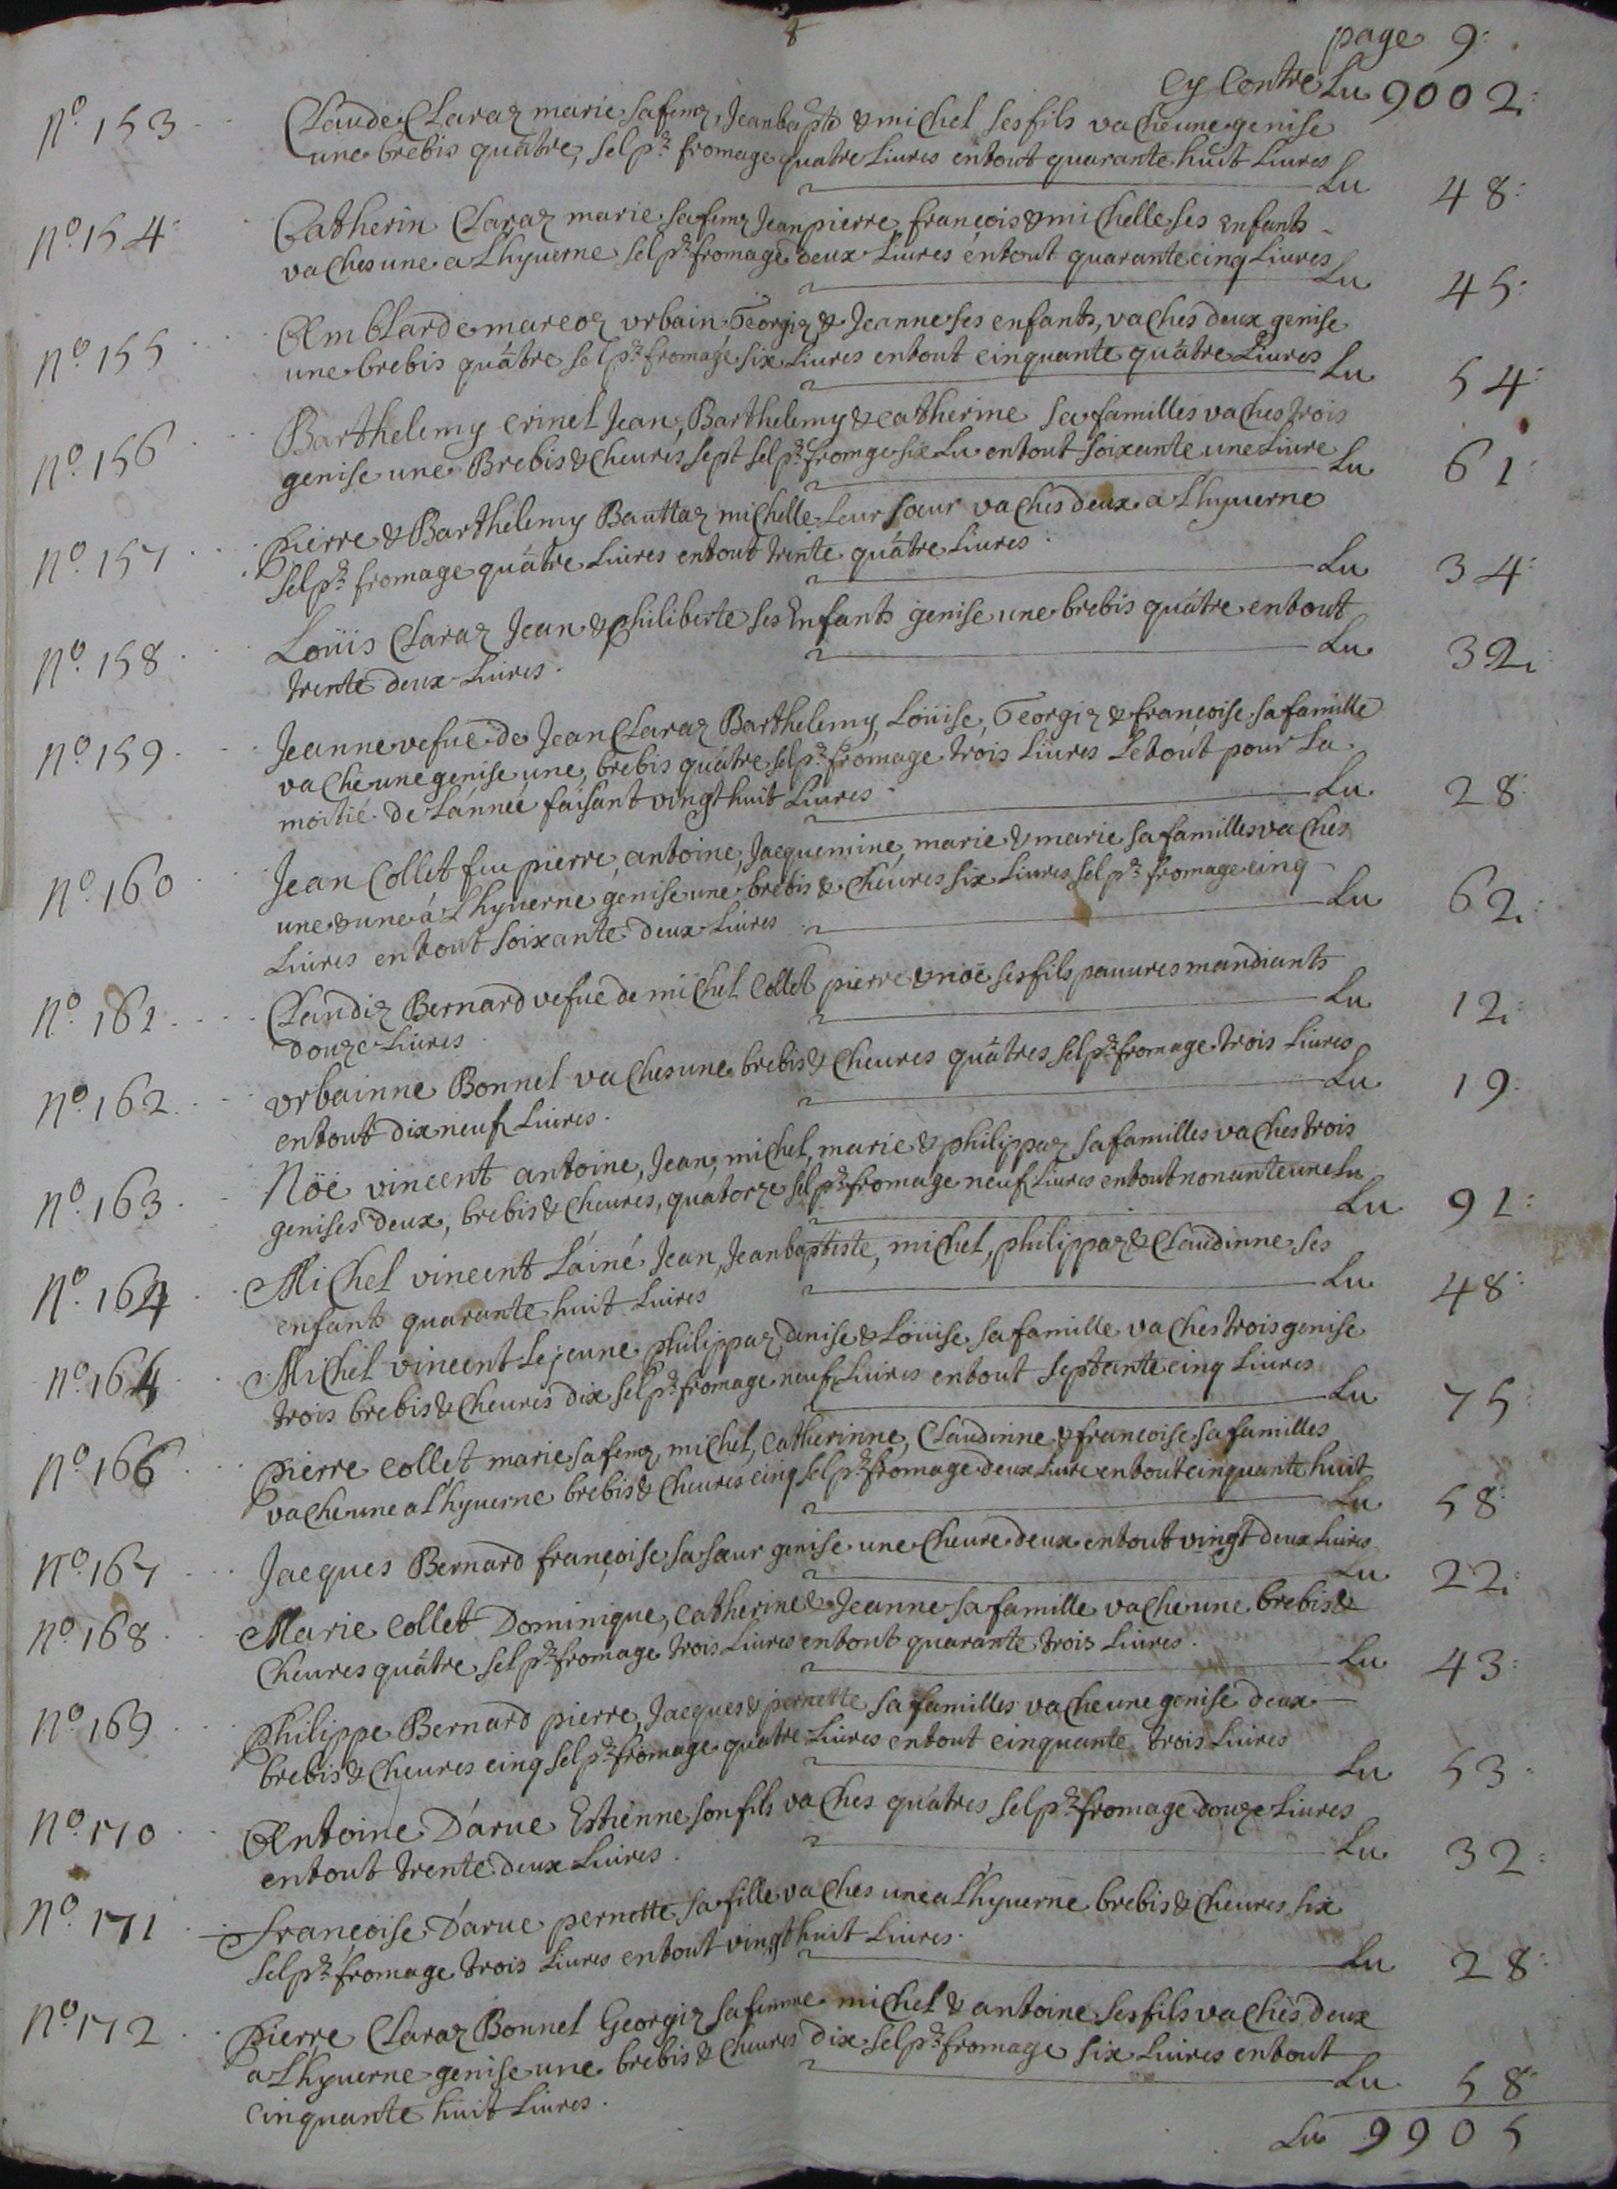 8
page 9:
Cy Contre Lu 9002:
No 153 Claude Claraz marie sa femz, Jeanbapte & michel ses fils vache une genise
une brebis quatre, sel pr fromage quatre Liures entout quarante huit Liures
Lu 48:
No 154 Catherin Claraz marie sa femz Jean pierre, françois & michelle ses Enfants
vaches une a Lhyuerne sel pr fromage deux Liures entout quarante cinq Liures
Lu 45:
No 155 Amblarde marcoz vrbain Georgiz & Jeanne ses enfants, vaches deux genise
une brebis quatre sel pr fromage six Liures entout cinquante quatre Liures
Lu 54:
No 156 Barthelemy crinel Jean, Barthelemy & catherine sa familles vaches trois
genise une Brebis & cheures sept sel pr fromge six Lu entout soixante une Liure
Lu 61:
No 157 pierre & Barthelemy Bauttaz michelle Leur sœur vaches deux a Lhyuerne
sel pr fromage quatre Liures entout trente quatre Liures.
Lu 34:
No 158 Loüis Claraz Jean & philiberte ses Enfants genise une brebis quatre entout
trente deux Liures.
Lu 32:
No 159 Jeanne vefue de Jean Claraz Barthelemy, Loüise, Georgiz & françoise sa famille
vache une genise une, brebis quatre sel pr fromage trois Liures Letout pour La
moitié de Lánnée faisant vingt huit Liures
Lu 28:
No 160 Jean Collet feu pierre, antoine, Jacquemine, marie & marie sa familles vaches
une & une á Lhyuerne genise une brebis & cheures six Liures sel pr fromage cinq
Liures entout soixante deux Liures
Lu 62:
No 161 Claudiz Bernard vefue de michel Collet pierre & noë ses fils pauures mandiants
douze Liures
Lu 12:
No 162 vrbainne Bonnel vaches une brebis & cheures quatres sel pr fromage trois Liures
entout dix neuf Liures.
Lu 19:
No 163 Nöe vincent antoine, Jean, michel, marie & philippaz sa familles vaches trois
genises deux, brebis & cheures, quatorze sel pr fromage neuf Liures entout nonante une Lu
Lu 91:
No 164 Michel vincent Láiné Jean, Jeanbaptiste, michel, philippaz & Claudinne ses
enfants quarante huit Liures
Lu 48:
No 164 Michel vincent Lejeune philippaz, danise & Loüise sa famille vaches trois genise
trois brebis & cheures dix sel pr fromage neuf Liures entout septante cinq Liures
Lu 75:
No 166 pierre collet marie sa femz, michel, catherinne, Claudinne & francoise sa familles
vache une a Lhyuerne brebis & cheures cinq sel pr fromage deux Liure entout cinquante huit
Lu 58:
No 167 Jacques Bernard françoise sa sœur genise une cheure deux entout vingt deux Liures
Lu 22:
No 168 Marie collet Dominique, catherine & Jeanne sa famille vache une brebis &
Cheures quátre sel pr fromage trois Liures entout quarante trois Liures.
Lu 43:
No 169 philippe Bernard pierre, Jacques & pernette sa familles vache une genise deux
brebis & cheures cinq sel pr fromage quatre Liures entout cinquante trois Liures
Lu 53:
No 170 Antoine Dárue Estienne son fils vaches quátres sel pr fromage douze Liures
entout trente deux Liures.
Lu 32:
No 171 françoise Dárue pernette sa fille vaches une a Lhyuerne brebis & cheures six
sel pr fromage trois Liures entout vingt huit Liures.
Lu 28:
No 172 pierre Claraz Bonnel Georgiz sa femme michel & antoine ses fils vaches deux
a Lhyuerne genise une brebis & cheures dix sel pr fromage six Liures entout
cinquante huit Liures.
Lu 58
Lu 9905